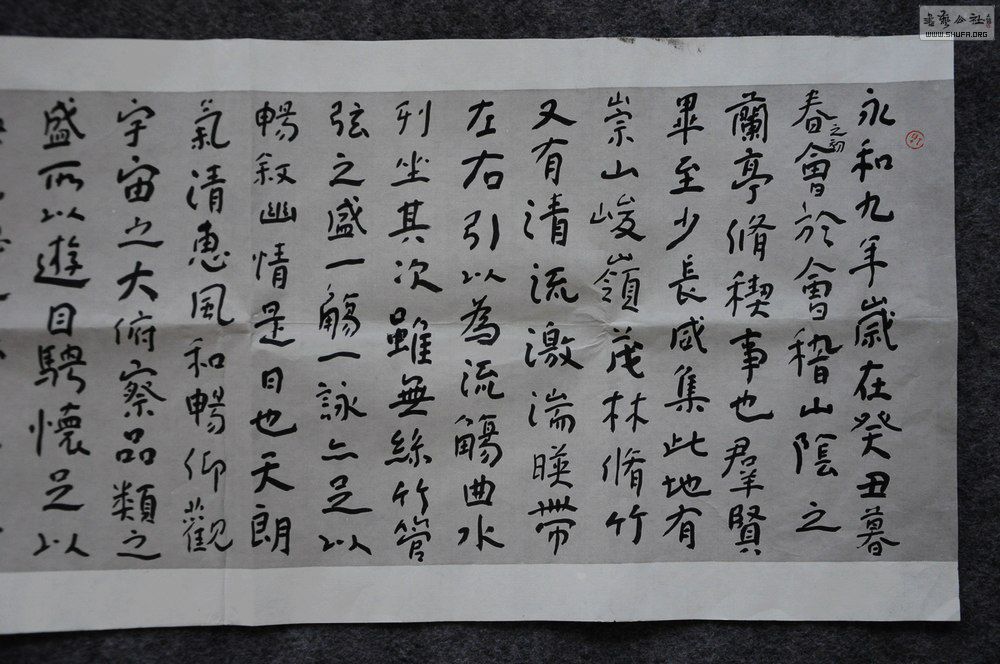 永和九年歲在癸丑暮
春之初會於會稽山陰之
蘭亭脩稧事也羣賢
畢至少長咸集此地有
崇山峻嶺茂林脩竹
又有清流激湍暎帶
左右引以為流觴曲水
列坐其次雖無絲竹管
弦之盛一觴一詠亦足以
暢敘幽情是日也天朗
氣清惠風和暢仰觀
宇宙之大俯察品類之
盛所以遊目騁懷足以
書藝公社
WWW.SHUFA.ORG